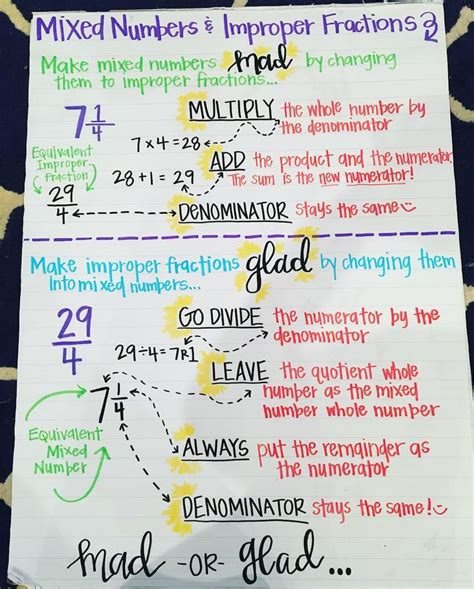 Mixed Numbers & Improper Fractions
Make mixed numbers mad by changing
them to improper fractions...
7 1/4
MULTIPLY the whole number by
the denominator
7 x 4 = 28
Equivalent
Improper
Fraction
ADD the product and the numerator
The sum is the new numerator!
28 + 1 = 29
29/4
DENOMINATOR stays the same
Make improper fractions glad by changing them
into mixed numbers...
29/4
GO DIVIDE the numerator by the
denominator
29 ÷ 4 = 7R1
LEAVE the quotient whole
number as the mixed
number whole number
7 1/4
Equivalent
Mixed
Number
ALWAYS put the remainder as
the numerator
DENOMINATOR stays the same!
mad -OR- glad...